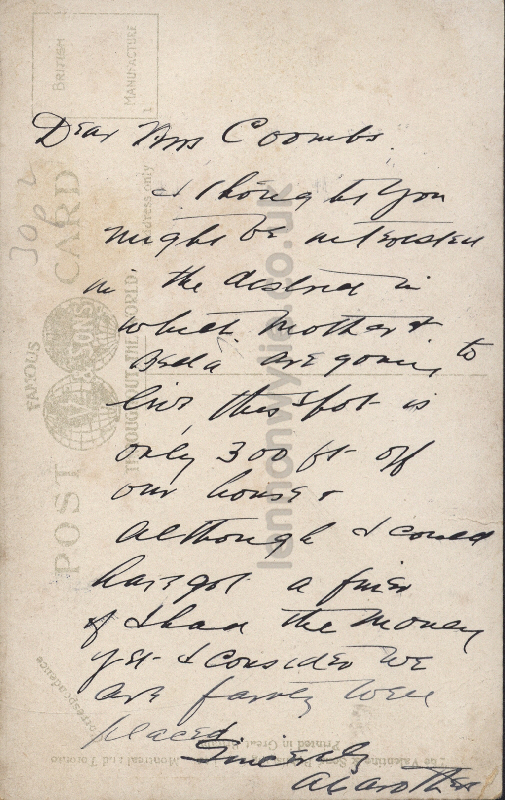 BRITISH MANUFACTURE
Dear Mrs Coombs.
I thought you
might be interested
in the district in
which Mother &
are going to
live this spot is
only 300 ft off
our house &
although I could
have got a finer
if I had the money
yet I consider we
are fairly well
placed
Sincerely
POST CARD
FAMOUS
THROUGHOUT THE WORLD
Address only
Correspondence
Printed in Great Britain
Montreal and Toronto
iannonwylie.co.uk